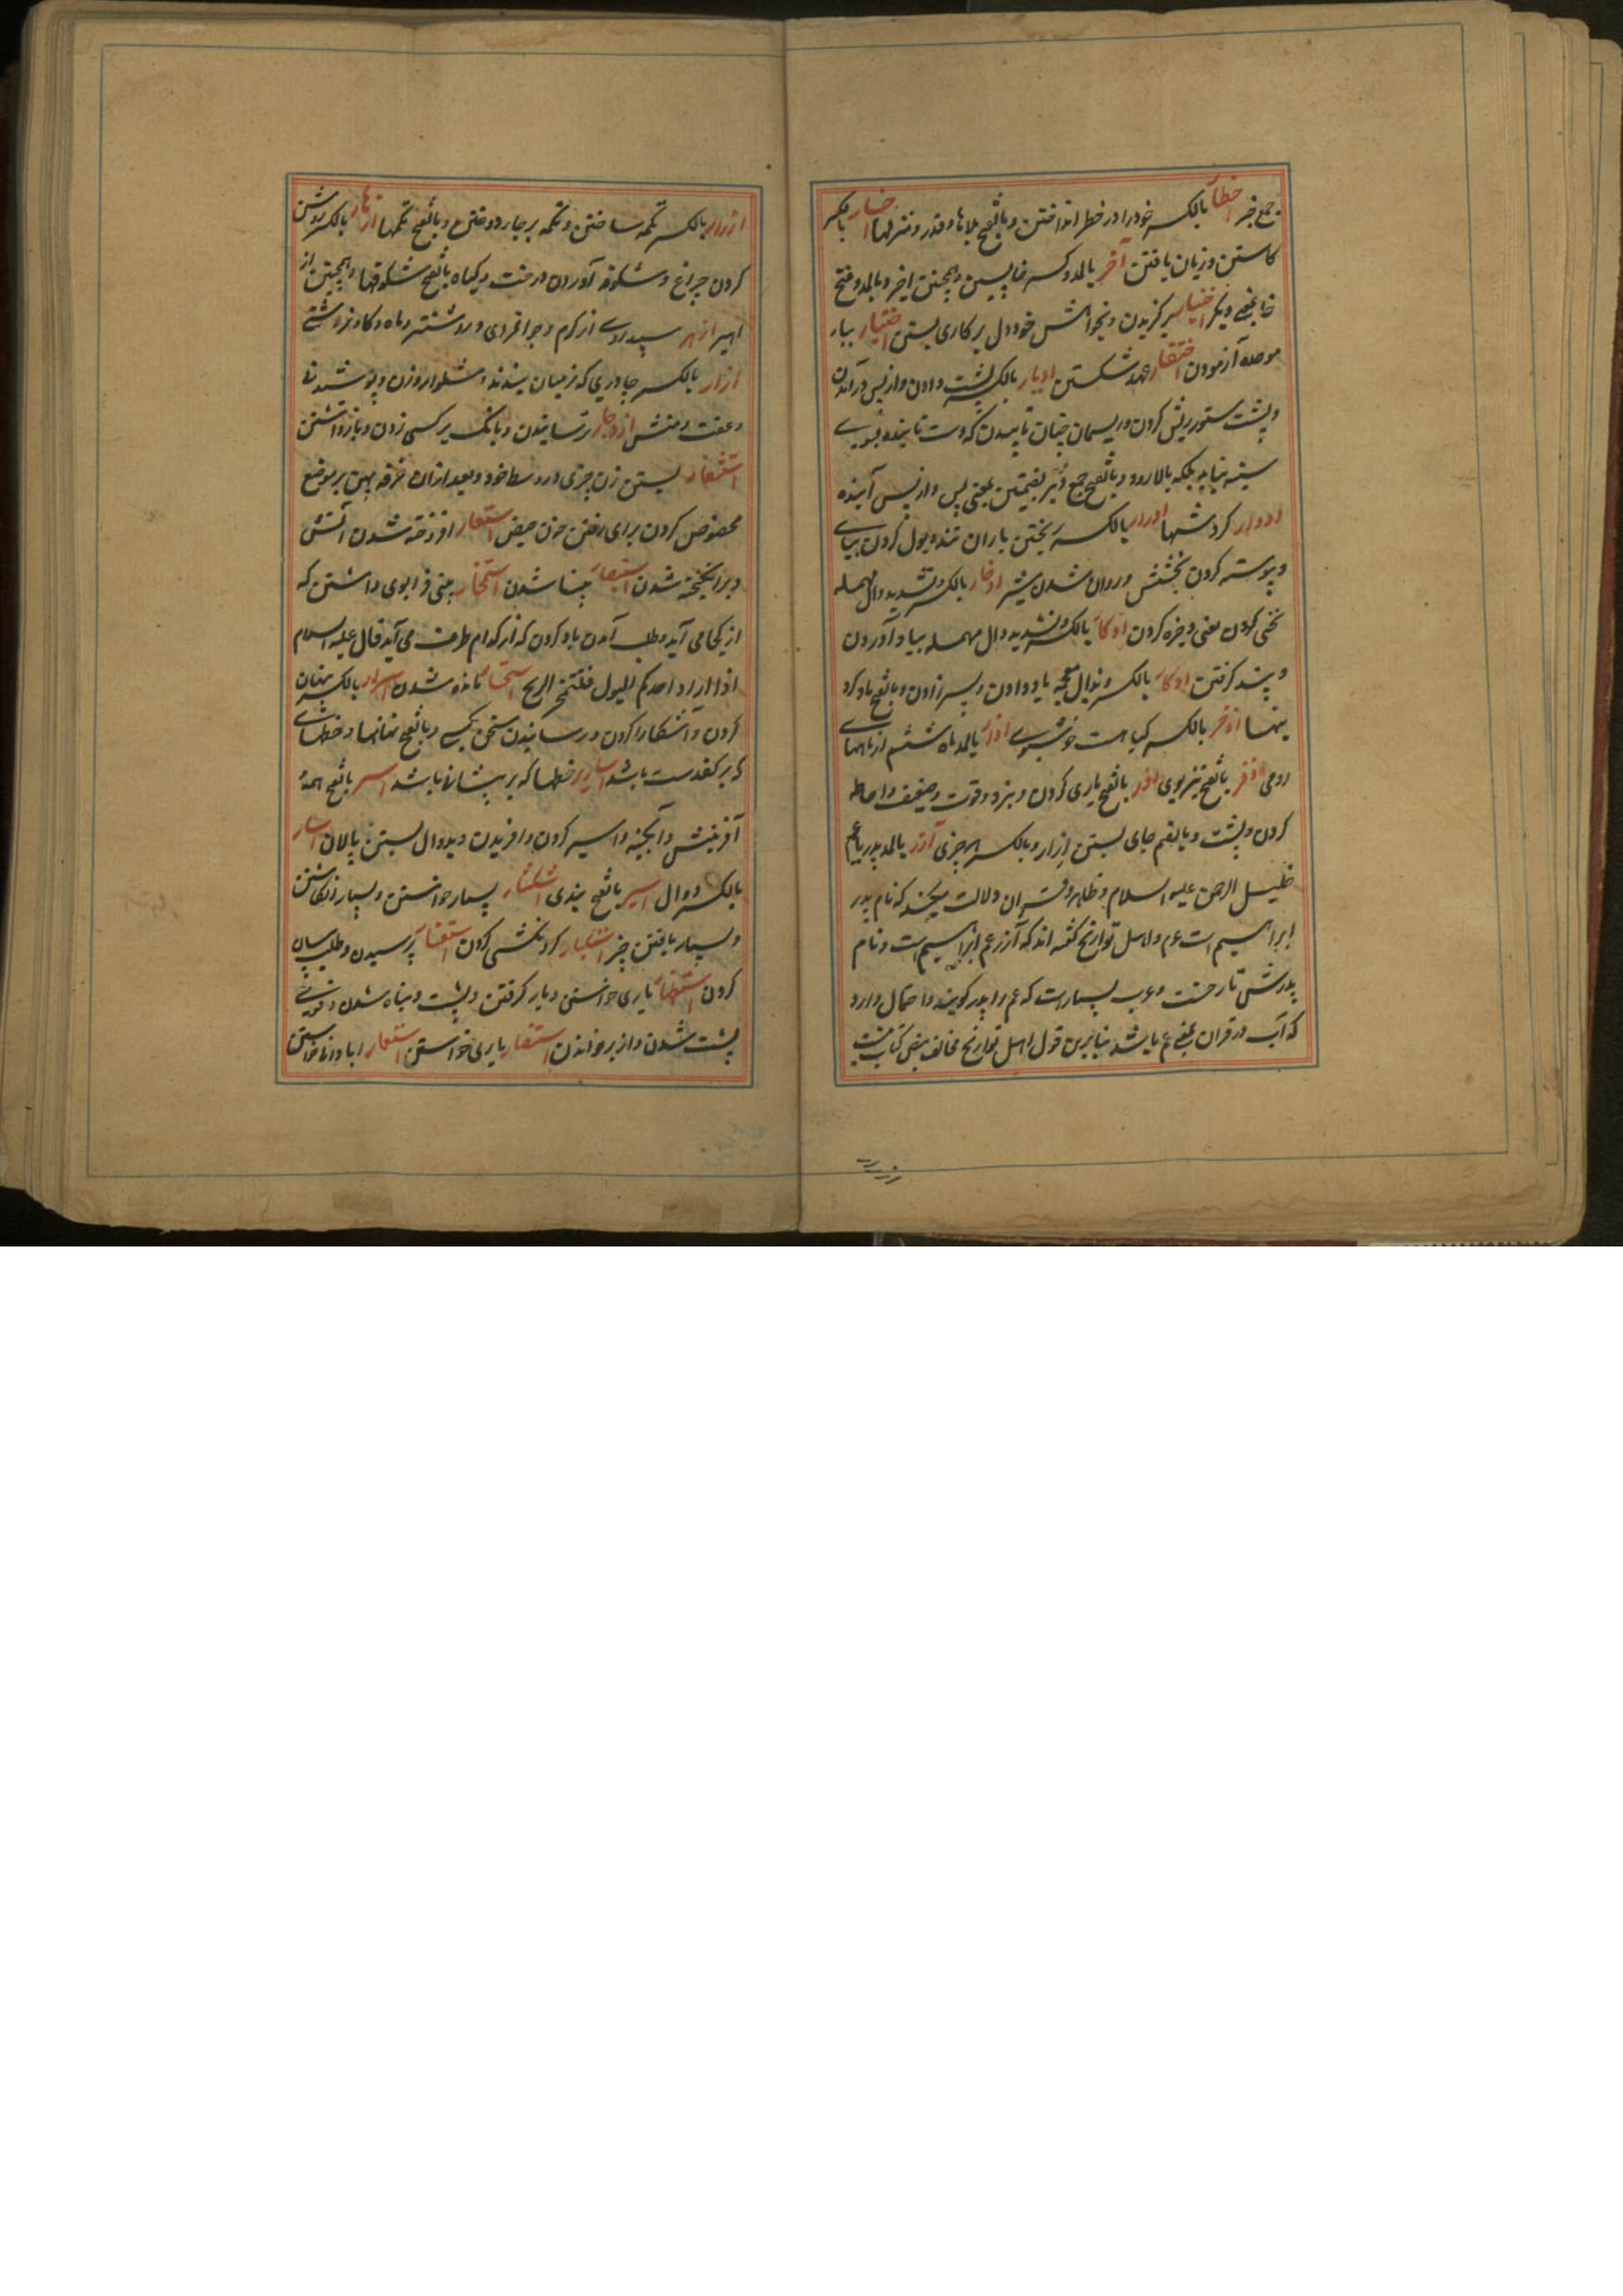 جمع خبر اخطار بالکسر خود را در خطر انداختن و بالفتح بلاها و قدر و منزلها اخسار بالکسر
کاستن و زیان یافتن آخر بالمد و کسر خا پسین و همچنین اخیر و بالمد و فتح
خا بمعنی دیگر اختیار برگزیدن و بخواهش خود دل بر کاری بستن اختبار ببار
موحده آزمودن اختفار عهد شکستن ادبار بالکسر پشت دادن و از پس در آمدن
و پشت ستور ریش کردن و ریسمان چنان تابیدن که دست تابنده بسوی
سینه نیاید بلکه بالا رود و بالفتح جمع دُبُر بضمتین بمعنی پس و از پس آینده
ادوار گردشها ادرار بالکسر ریختن باران تند و بول کردن پیاپی
و پیوسته کردن بخشش و روان شدن شیر ادخار بالکسر و تشدید دال مهمله
یخنی کردن یعنی ذخیره کردن ادکار بالکسر و تشدید دال مهمله بیاد آوردن
و پند گرفتن اذکار بالکسر و بذال معجمه یاد دادن و پسر زادن و بالفتح یاد کرد
نیها اذخر بالکسر گیاهست خوشبوی آذار بالمد ماه ششم از ماههای
رومی اذفر بالفتح تیزبوی ازر بالفتح یاری کردن و نیرو و قوت و ضعف و احاطه
کردن و پشت و بالضم جای بستن اِزار و بالکسر هر چیزی آزر بالمد پدر یا عم
خلیل الرحمن علیه السلام و ظاهر قرآن دلالت میکند که نام پدر
ابراهیم است عم و اهل تواریخ گفته اند که آزر عم ابراهیم است و نام
پدرش تارخست و عرب بسیارست که عم را پدر گویند و احتمال دارد
که آب در قرآن بمعنی عم باشد بنابرین قول اهل تواریخ مخالف نص کتاب نیست
ازرار بالکسر تکمه ساختن و تکمه بر جا دوختن و بالفتح تکمها ازهار بالکسر روشن
کردن چراغ و شکوفه آوردن درخت و گیاه بالفتح شکوفها و همچنین از
اهیر ازهر سپیدروی از کرم و جوانمردی و روشنتر و ماه و گاو نر دشتی
ازار بالکسر چادری که در میان بندند و شلوار و زن و پوشیدنی
و عفت و منش ازدجار ترسانیدن و بانگ بر کسی زدن و باز داشتن
استثفار بستن زن چیزی در وسط خود و بعد ازان خرقه پهن بر موضع
مخصوص کردن برای رفتن خون حیض استعار افروخته شدن آتش
و برانگیخته شدن استبصار بینا شدن استمخار بینی فرا بوی داشتن که
از کجا می آید و طلب آمدن باد کردن که از کدام طرف می آید قال علیه السلام
اذا اراد احدکم البول فلیتمخر الریح استحسار مانده شدن اسرار بالکسر پنهان
کردن و آشکارا کردن و رسانیدن سخن بکسی و بالفتح نهانها و خطهای
که بر کف دست باشد اساریر خطها که بر پیشانی باشد اسر بالفتح همهٔ
آفرینش و آبگینه و اسیر کردن و افریدن و بدوال بستن پالان اسار
بالکسر دوال اسیر بالفتح بندی استکثار بسیار خواستن و بسیار انگاشتن
و بسیار یافتن چیز استکبار گردنکشی کردن استفسار پرسیدن و طلب بیان
کردن استظهار یاری خواستن و یار گرفتن و پشت و پناه شدن و قوی
پشت شدن و از بر خواندن استنصار یاری خواستن استعمار آبادانی خواستن